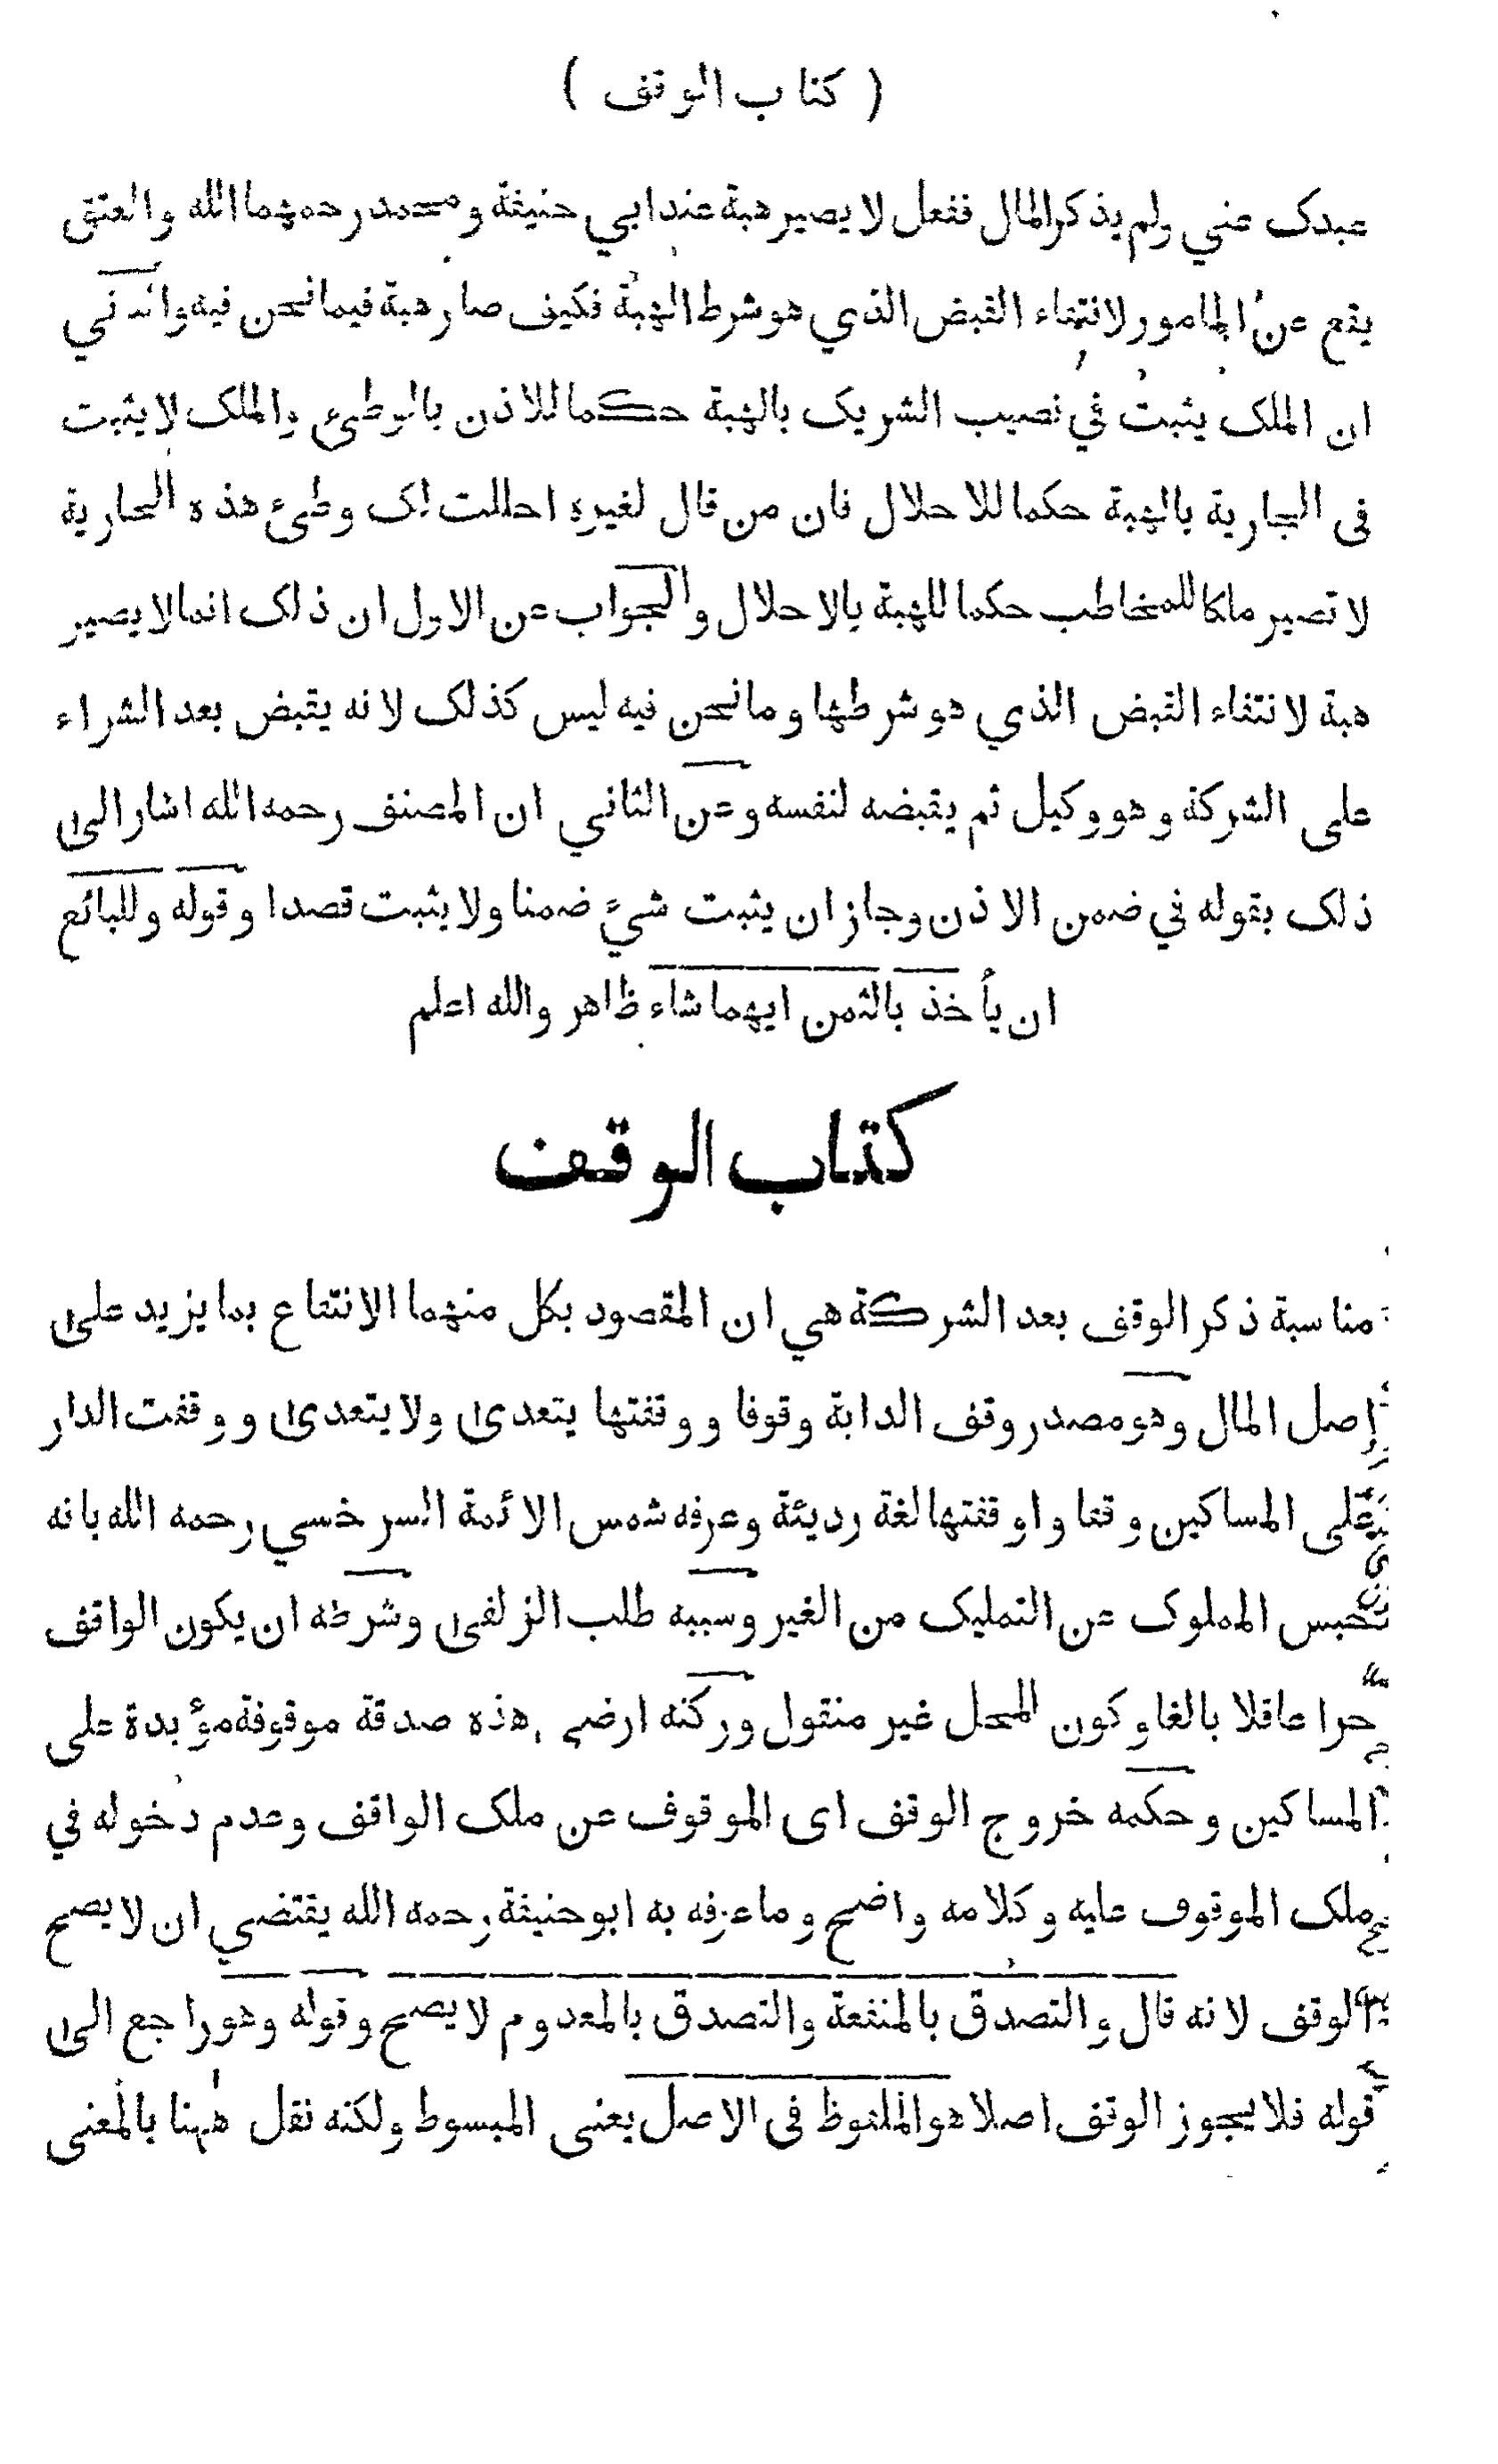 ( كتاب الوقف )
عبدک عني ولم يذكر المال ففعل لا يصير هبة عند ابي حنيفة و محمد رحمهما الله والعتق
يقع عن المامور لانتفاء القبض الذي هو شرط الهبة فكيف صار هبة فيما نحن فيه والثاني
ان الملک يثبت في نصيب الشريک بالهبة حكما للاذن بالوطئ والملک لا يثبت
فى الجارية بالهبة حكما للاحلال فان من قال لغيره احللت لک وطئ هذه الجارية
لا تصير ملكا للمخاطب حكما للهبة بالاحلال والجواب عن الاول ان ذلک انما لا يصير
هبة لانتفاء القبض الذي هو شرطها وما نحن فيه ليس كذلک لانه يقبض بعد الشراء
على الشركة وهو وكيل ثم يقبضه لنفسه وعن الثاني ان المصنف رحمه الله اشار الى
ذلک بقوله في ضمن الاذن وجاز ان يثبت شيء ضمنا ولا يثبت قصدا وقوله وللبائع
ان يأخذ بالثمن ايهما شاء ظاهر والله اعلم
كتاب الوقف
مناسبة ذكر الوقف بعد الشركة هي ان المقصود بكل منهما الانتفاع بما يزيد على
اصل المال وهو مصدر وقف الدابة وقوفا ووقفتها يتعدى ولا يتعدى ووقفت الدار
على المساكين وقفا واوقفتها لغة رديئة وعرفه شمس الائمة السرخسي رحمه الله بانه
حبس المملوک عن التمليک من الغير وسببه طلب الزلفى وشرطه ان يكون الواقف
حرا عاقلا بالغا وكون المحل غير منقول وركنه ارضي هذه صدقة موقوفة مؤبدة على
المساكين وحكمه خروج الوقف اى الموقوف عن ملک الواقف وعدم دخوله في
ملک الموقوف عليه وكلامه واضح وما عرفه به ابو حنيفة رحمه الله يقتضي ان لا يصح
الوقف لانه قال والتصدق بالمنفعة والتصدق بالمعدوم لا يصح وقوله وهو راجع الى
قوله فلا يجوز الوقف اصلا هو الملفوظ فى الاصل يعنى المبسوط ولكنه نقل ههنا بالمعنى